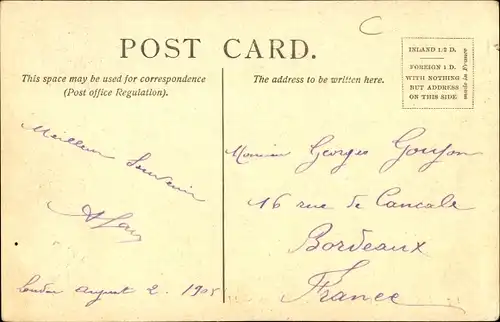 C
POST CARD.
This space may be used for correspondence
(Post office Regulation).
The address to be written here.
INLAND 1/2 D.
FOREIGN 1 D.
WITH NOTHING
BUT ADDRESS
ON THIS SIDE.
made in France
Meilleur Souvenir
London august 2. 1905
Monsieur Georges Goujon
16 rue de Cancale
Bordeaux
France